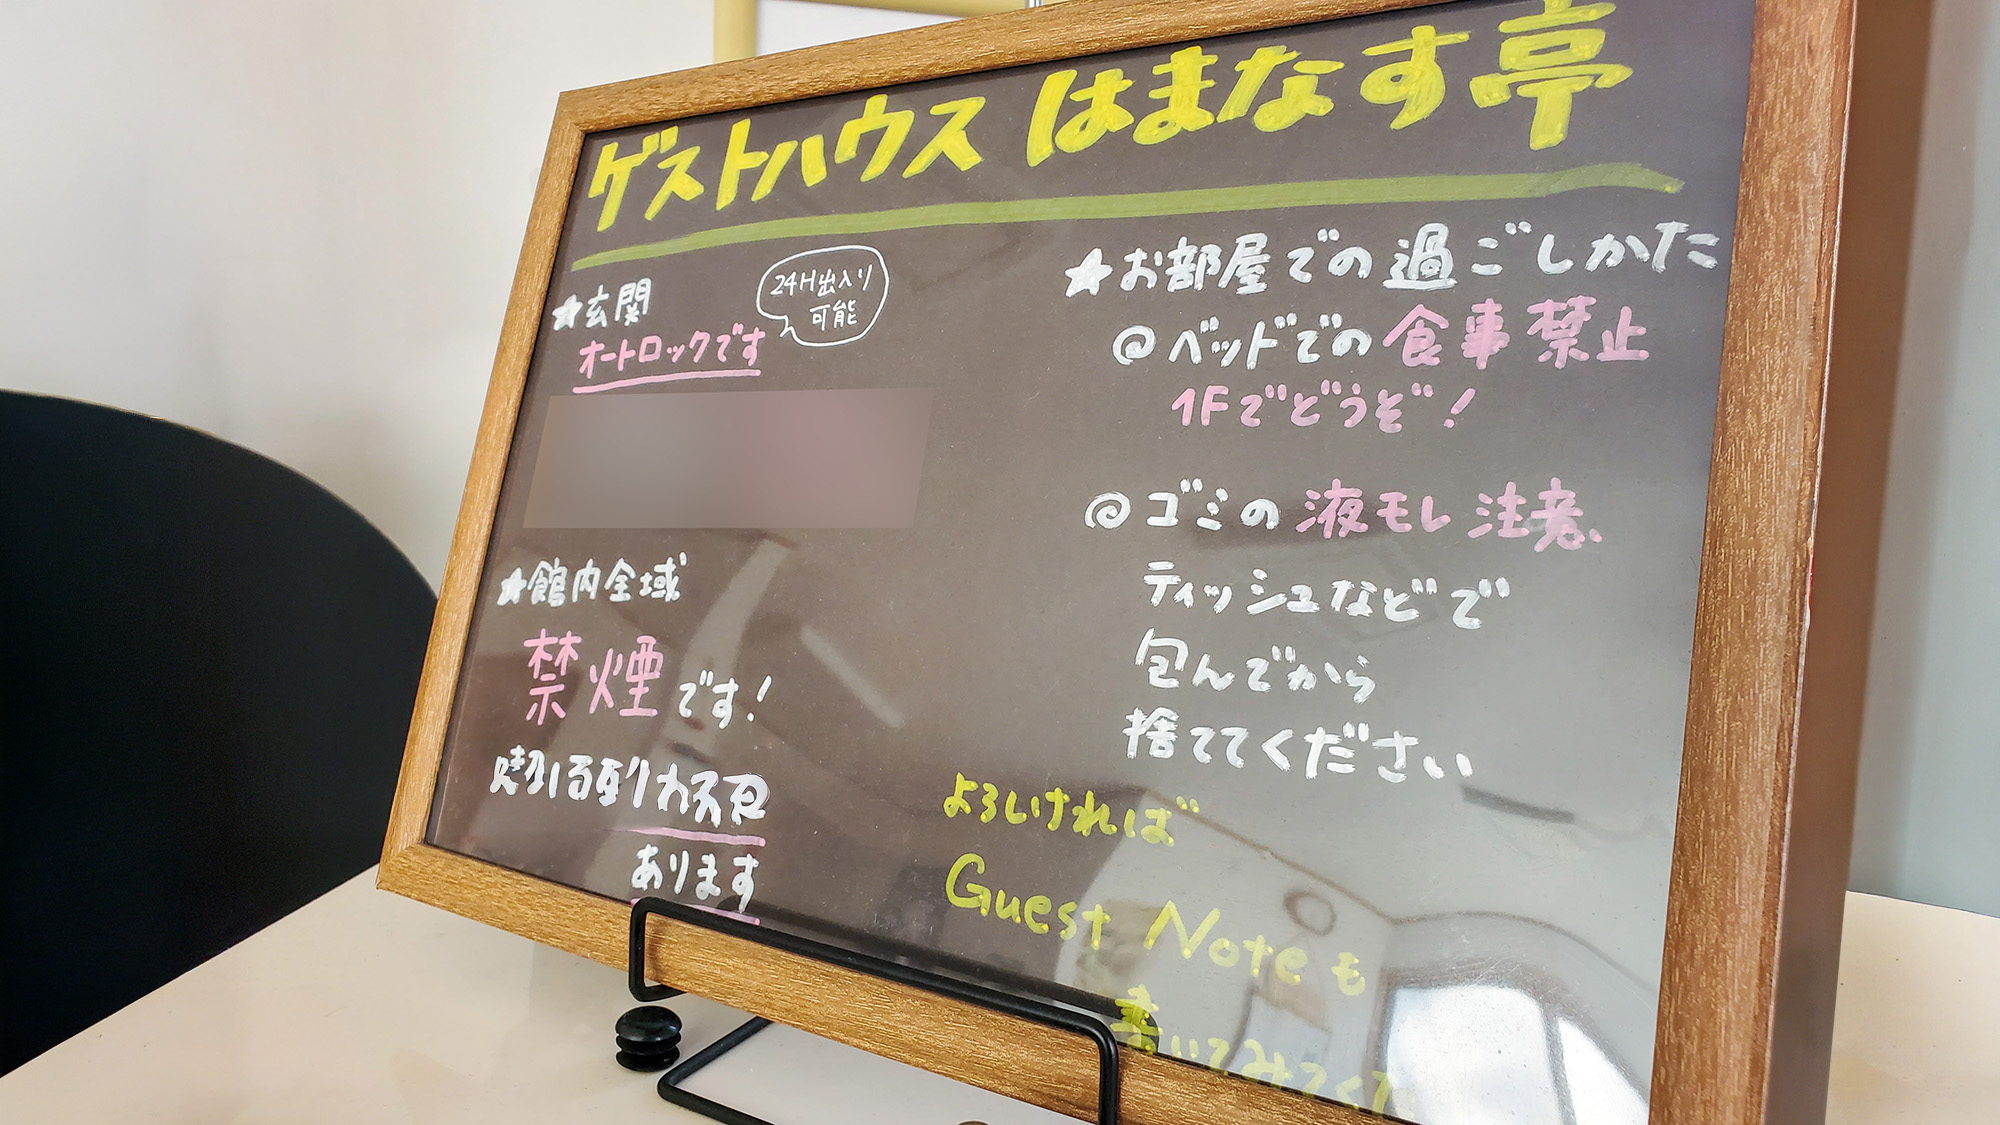 ゲストハウス はまなす亭
★玄関
24H出入り
可能
オートロックです
★館内全域
禁煙です!
あります
★お部屋での過ごしかた
@ベッドでの食事禁止
1Fでどうぞ!
@ゴミの液モレ注意
ティッシュなどで
包んでから
捨ててください
よろしければ
Guest Noteも
書いてみてくだ